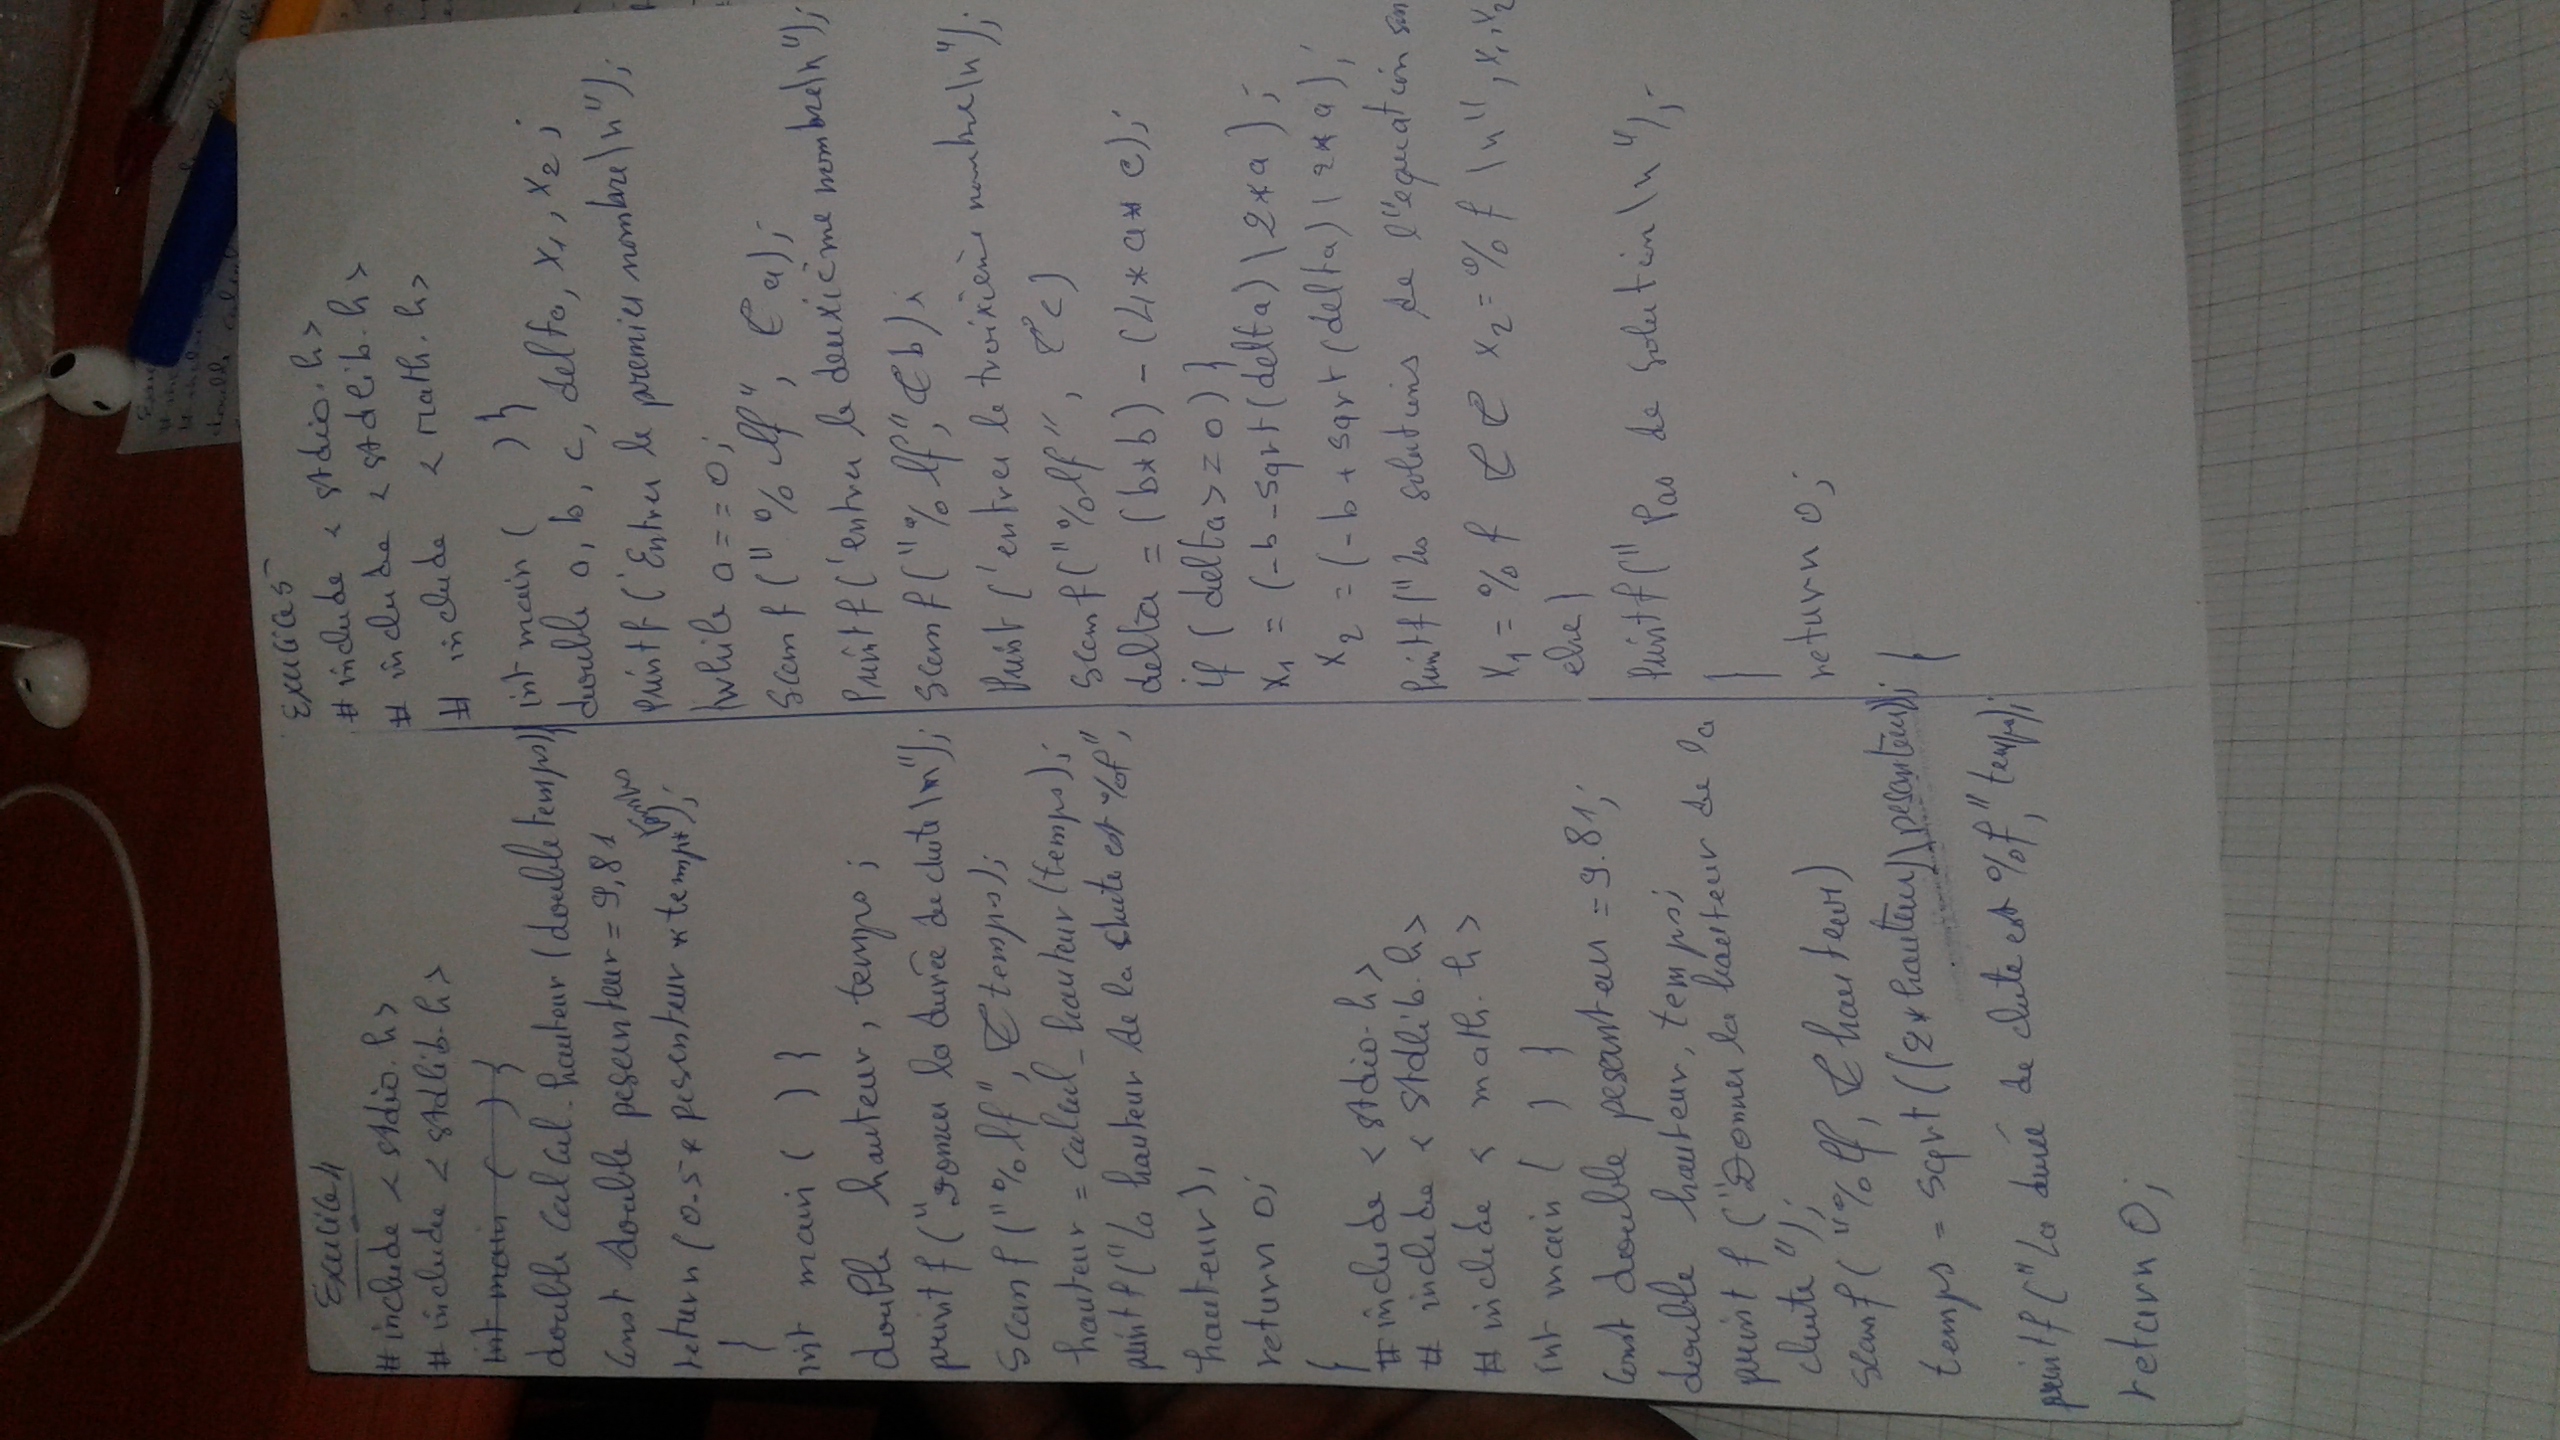 Exercice 4
# include < stdio.h>
# include < stdlib.h>
int main ( ) {
double calcul_hauteur (double temps) {
const double pesanteur = 9,81
return (0.5 * pesenteur * temps* temps);
}
int main ( ) {
double hauteur, temps ;
printf ("Donner la durée de chute \n");
scanf ("%lf", &temps);
hauteur = calcul_hauteur (temps);
printf ("La hauteur de la chute est %f",
hauteur);
return 0;
}
# include < stdio.h>
# include < stdlib.h>
# include < math.h>
int main ( ) {
const double pesanteur = 9.81;
double hauteur, temps;
printf ("Donner la hauteur de la
chute ");
scanf ( "%lf, & hauteur)
temps = sqrt ((2*hauteur)\pesanteur);
printf ("La durée de chute est %f," temps);
return 0;
Exercice 5
# include < stdio.h>
# include < stdlib.h>
# include < math.h>
int main ( ) {
double a, b, c, delta, x1, x2 ;
printf ('Entrer le premier nombre\n");
while a == 0;
scanf (" %lf", &a);
Printf ('entrer le deuxième nombre\n");
scanf ("%lf", &b);
Print ('entrer le troixième nombre\n");
scanf ("%lf", &c)
delta = (b*b) - (4*a*c);
if (delta >= 0) {
x1 = (-b-sqrt(delta) \ 2*a ) ;
x2 = (-b + sqrt (delta) \ 2*a ) ;
Printf (" les solutions de l"equation son
x1 = %f && x2 = %f \n", x1,x2
else {
Printf (" Pas de solution \n ");
}
return 0;
}